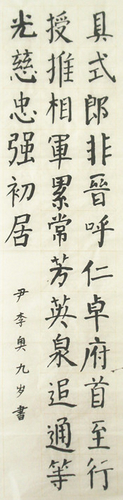 具式郎非晉呼仁卓府首至行
授推相軍累常芳英泉追通等
光慈忠强初居
尹李奥九岁書